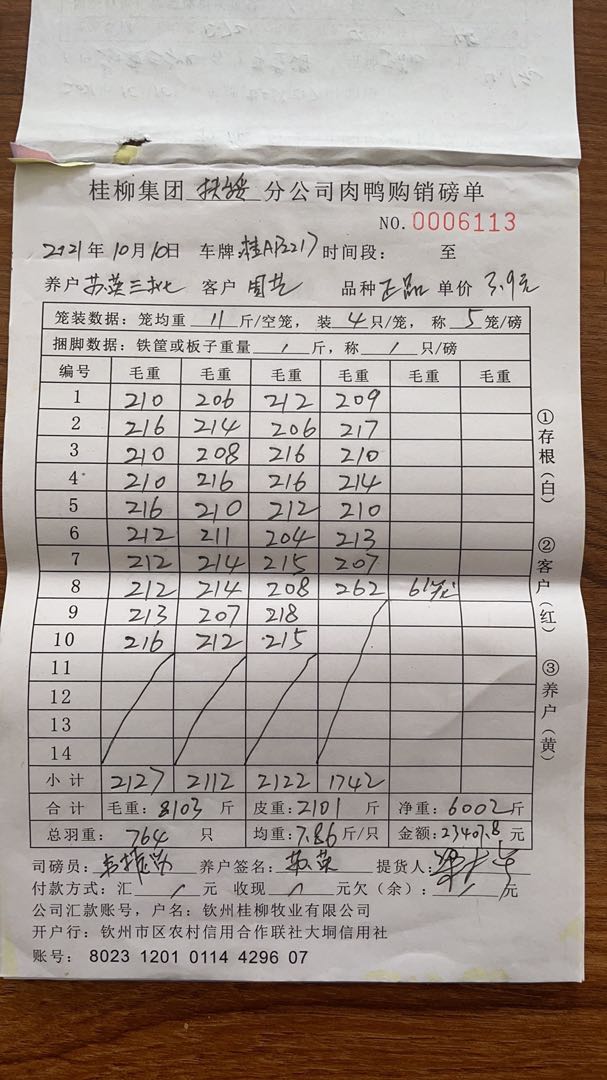 桂柳集团 扶绥 分公司肉鸭购销磅单
NO.0006113
2021年10月10日 车牌:桂A 217 时间段: 至
养户 苏英三批 客户 周艺 品种 正品 单价 3.9元
笼装数据:笼均重 11 斤/空笼,装 4 只/笼,称 5 笼/磅
捆脚数据:铁筐或板子重量 / 斤,称 / 只/磅
编号 毛重 毛重 毛重 毛重 毛重 毛重
1 210 206 212 209
2 216 214 206 217
3 210 208 216 210
4 210 216 216 214
5 216 210 212 210
6 212 211 204 213
7 212 214 215 207
8 212 214 208 262 6笼
9 213 207 218
10 216 212 215
11
12
13
14
小计 2127 2112 2122 1742
合计 毛重:8103 斤 皮重:2101 斤 净重:6002斤
总羽重: 764 只 均重:7.86斤/只 金额:23407.8元
司磅员: 养户签名: 苏英 提货人:
付款方式:汇 / 元 收现 / 元欠(余): / 元
公司汇款账号,户名:钦州桂柳牧业有限公司
开户行:钦州市区农村信用合作联社大垌信用社
账号:8023 1201 0114 4296 07
①存根(白)
②客户(红)
③养户(黄)